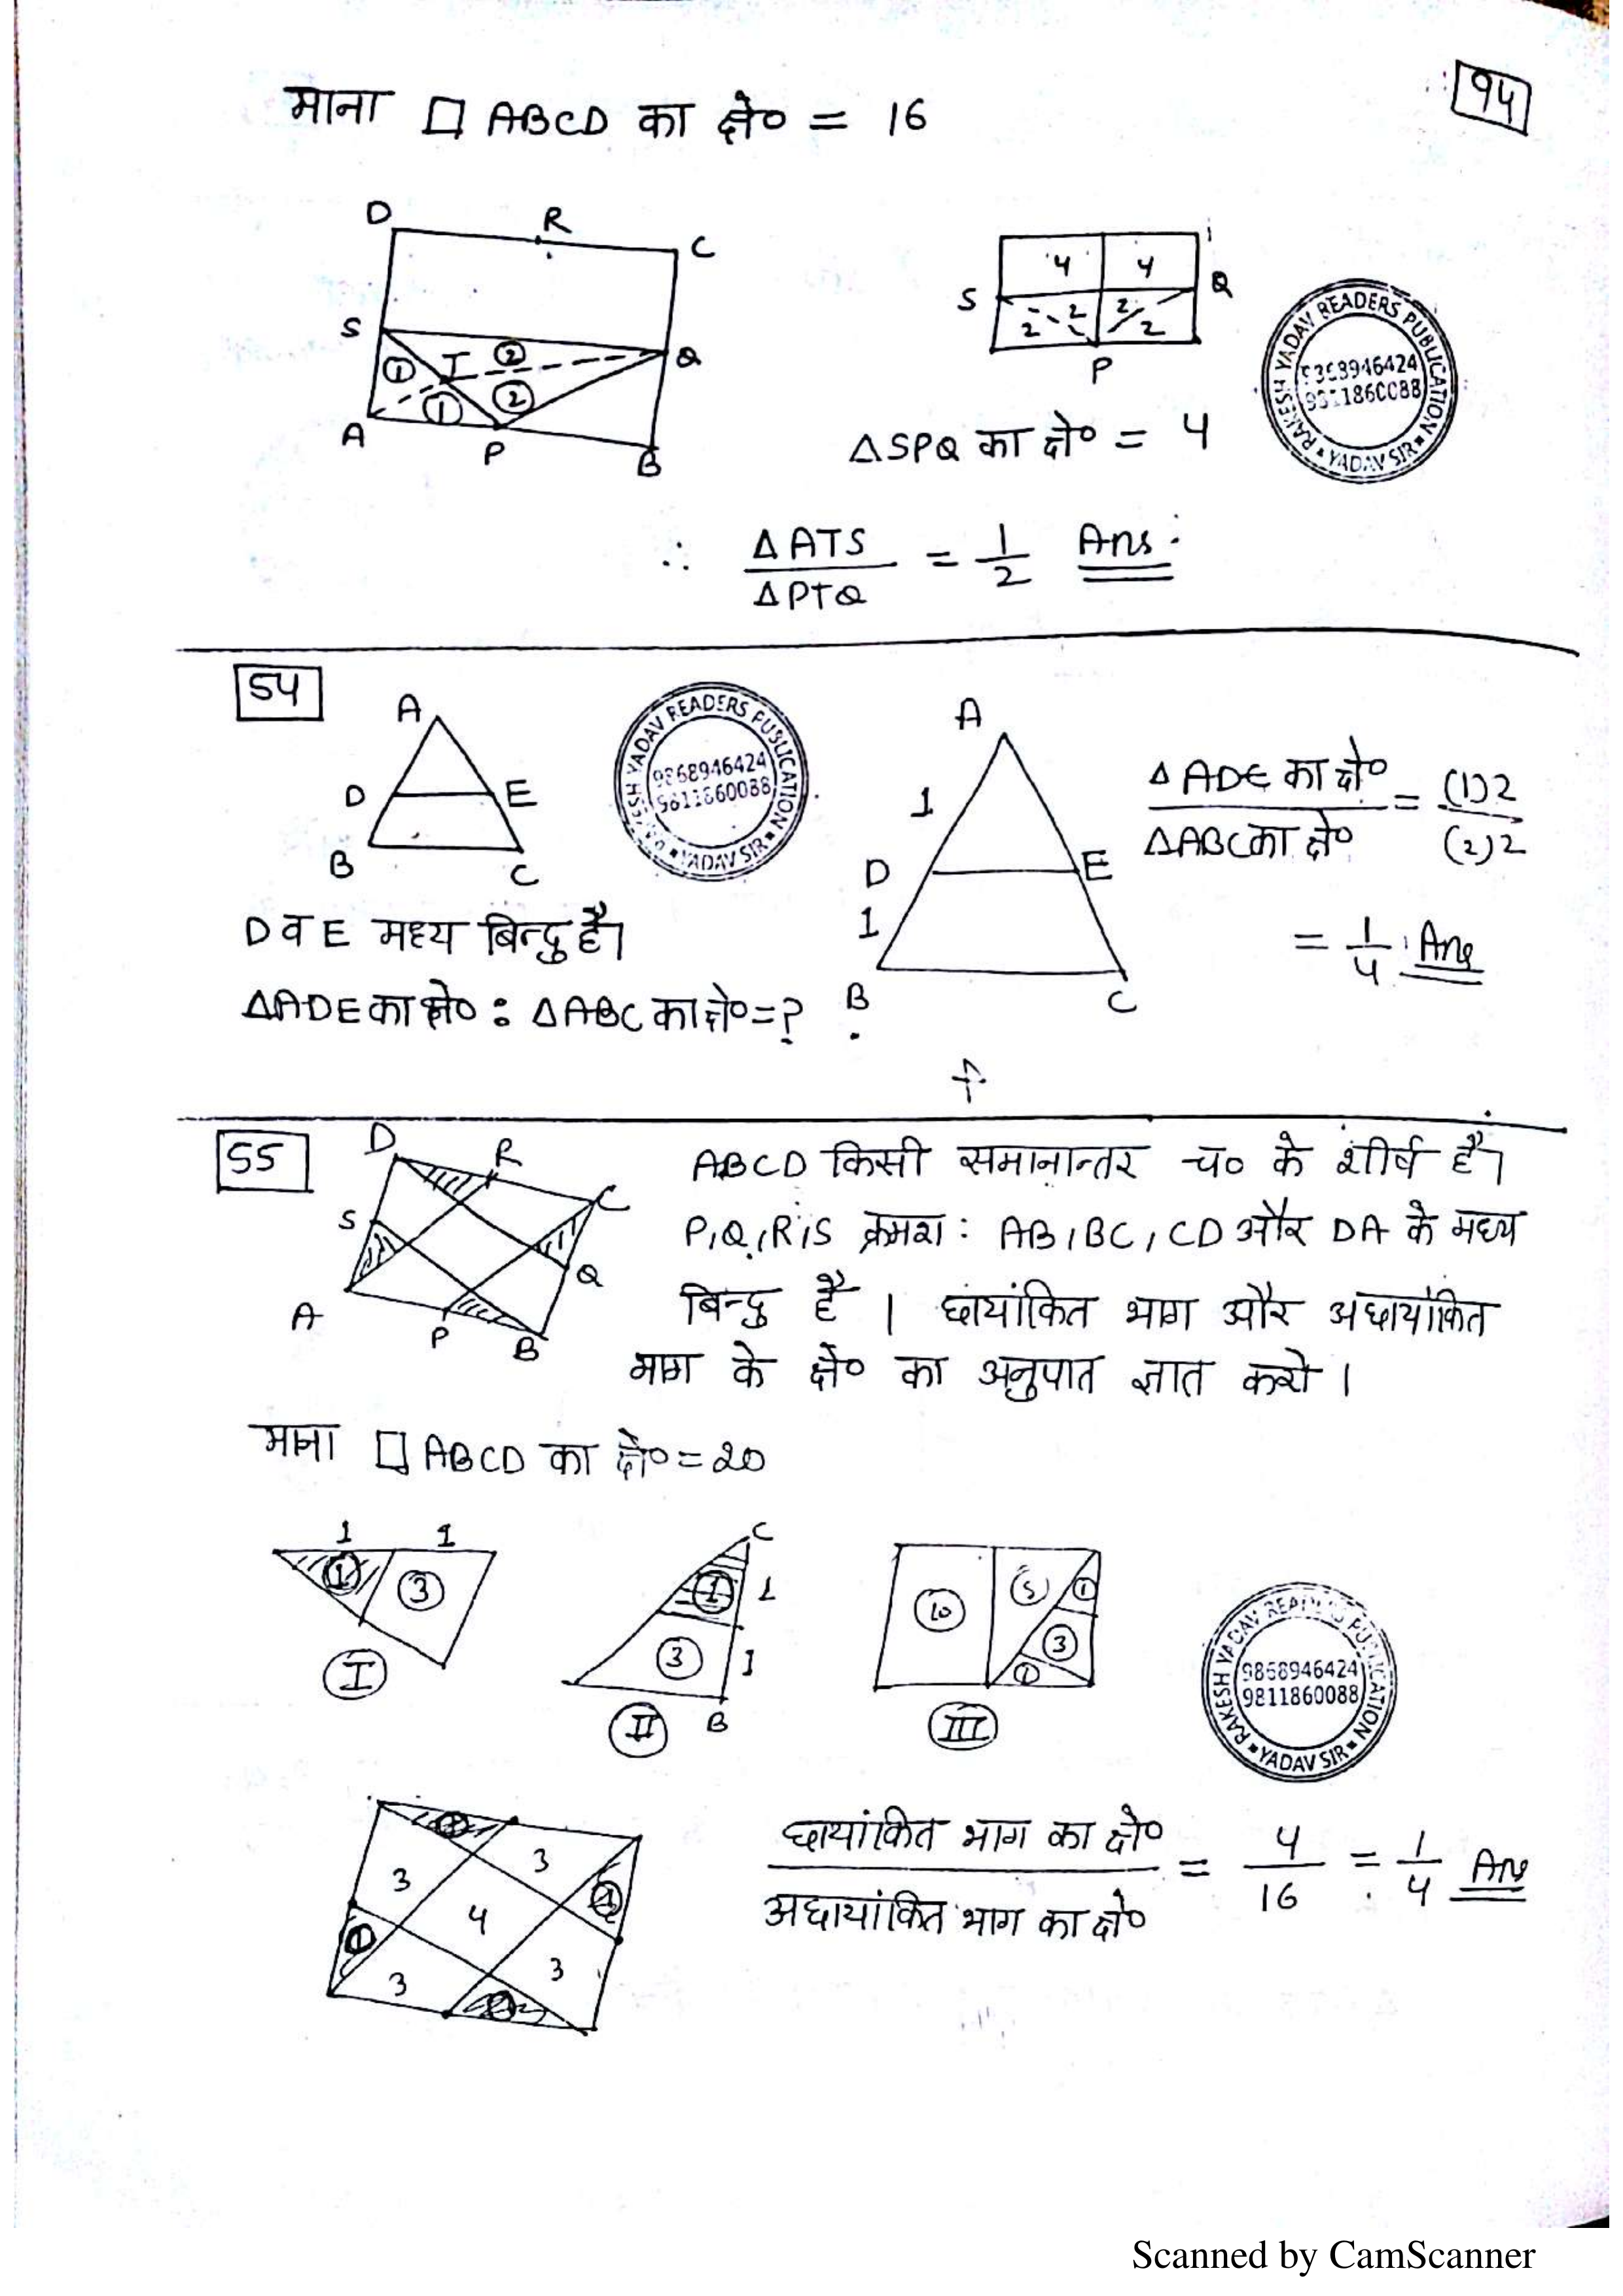 94
माना □ ABCD का क्षे० = 16
D R C
S Q
T
1 2
1 2
A P B
4 4
S Q
2 2 2 2
P
ΔSPQ का क्षे० = 4
RAKESH YADAV READERS PUBLICATION
9868946424
9811860088
YADAV SIR
∴ ΔATS / ΔPTQ = 1/2 Ans.
54
A
D E
B C
RAKESH YADAV READERS PUBLICATION
9868946424
9811860088
YADAV SIR
A
1
D E
1
B C
ΔADE का क्षे० / ΔABC का क्षे० = (1)2 / (2)2
= 1/4 Ans
D व E मध्य बिन्दु है।
ΔADE का क्षे० : ΔABC का क्षे० = ?
55
D R C
S Q
A P B
ABCD किसी समानान्तर च० के शीर्ष है।
P,Q,R,S क्रमश: AB, BC, CD और DA के मध्य
बिन्दु है । छायांकित भाग और अछायांकित
भाग के क्षे० का अनुपात ज्ञात करो ।
माना □ ABCD का क्षे० = 20
1 1
1 3
I
C
1 1
3 1
B
II
10 5 1
3
1
III
RAKESH YADAV READERS PUBLICATION
9868946424
9811860088
YADAV SIR
1
3 3 1
4
1 3 3
1
छायांकित भाग का क्षे० / अछायांकित भाग का क्षे० = 4/16 = 1/4 Ans
Scanned by CamScanner